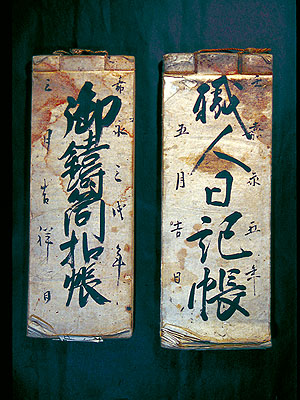 嘉永五年
職人日記帳
五月吉日
嘉永三戌年
御鑄筒扣帳
月吉祥日